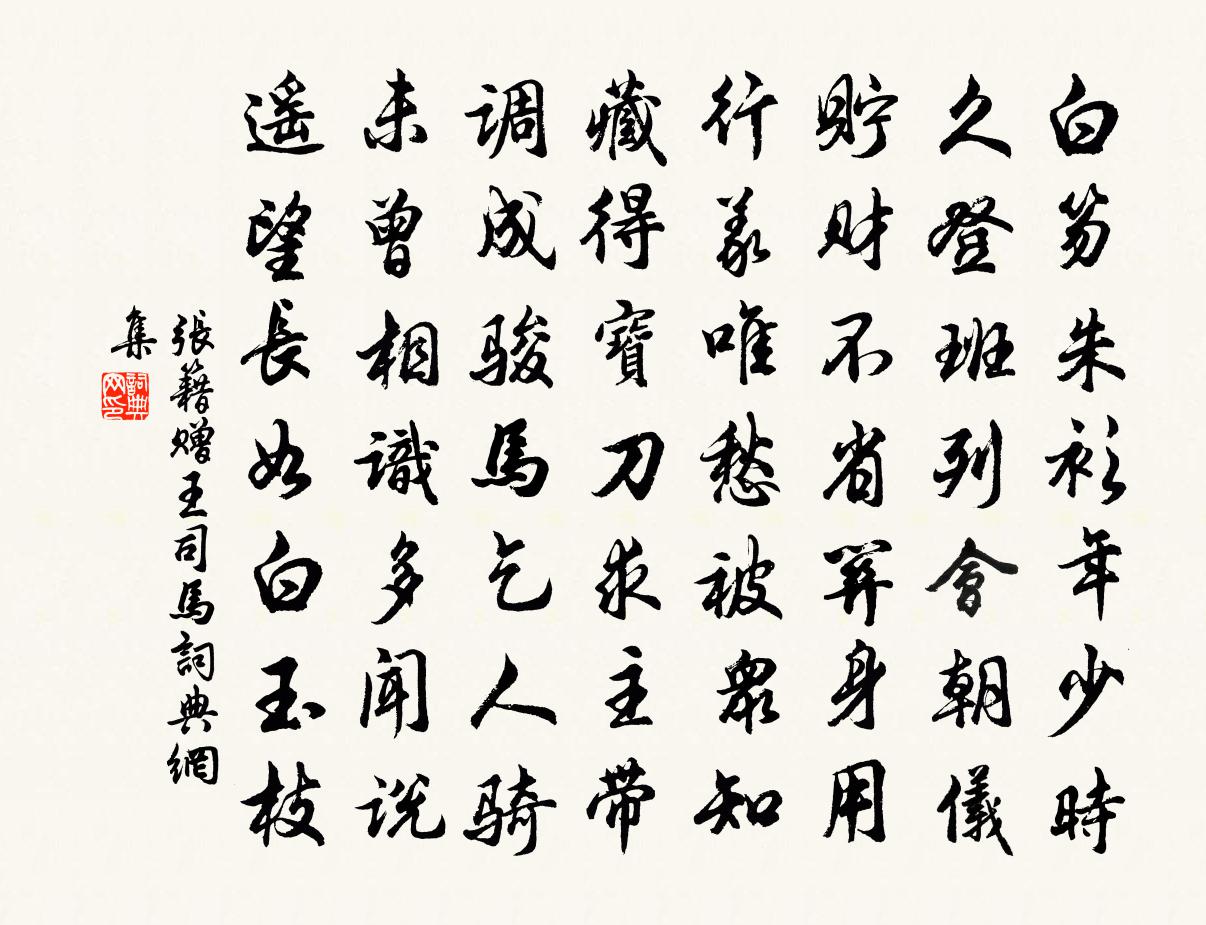 白笏朱衫年少時
久登班列會朝儀
貯財不省算身用
行義唯愁被衆知
藏得寶刀求主带
调成骏馬乞人骑
未曾相識多闻说
遥望長如白玉枝
張籍赠王司馬詞典網
集
詞典
网印